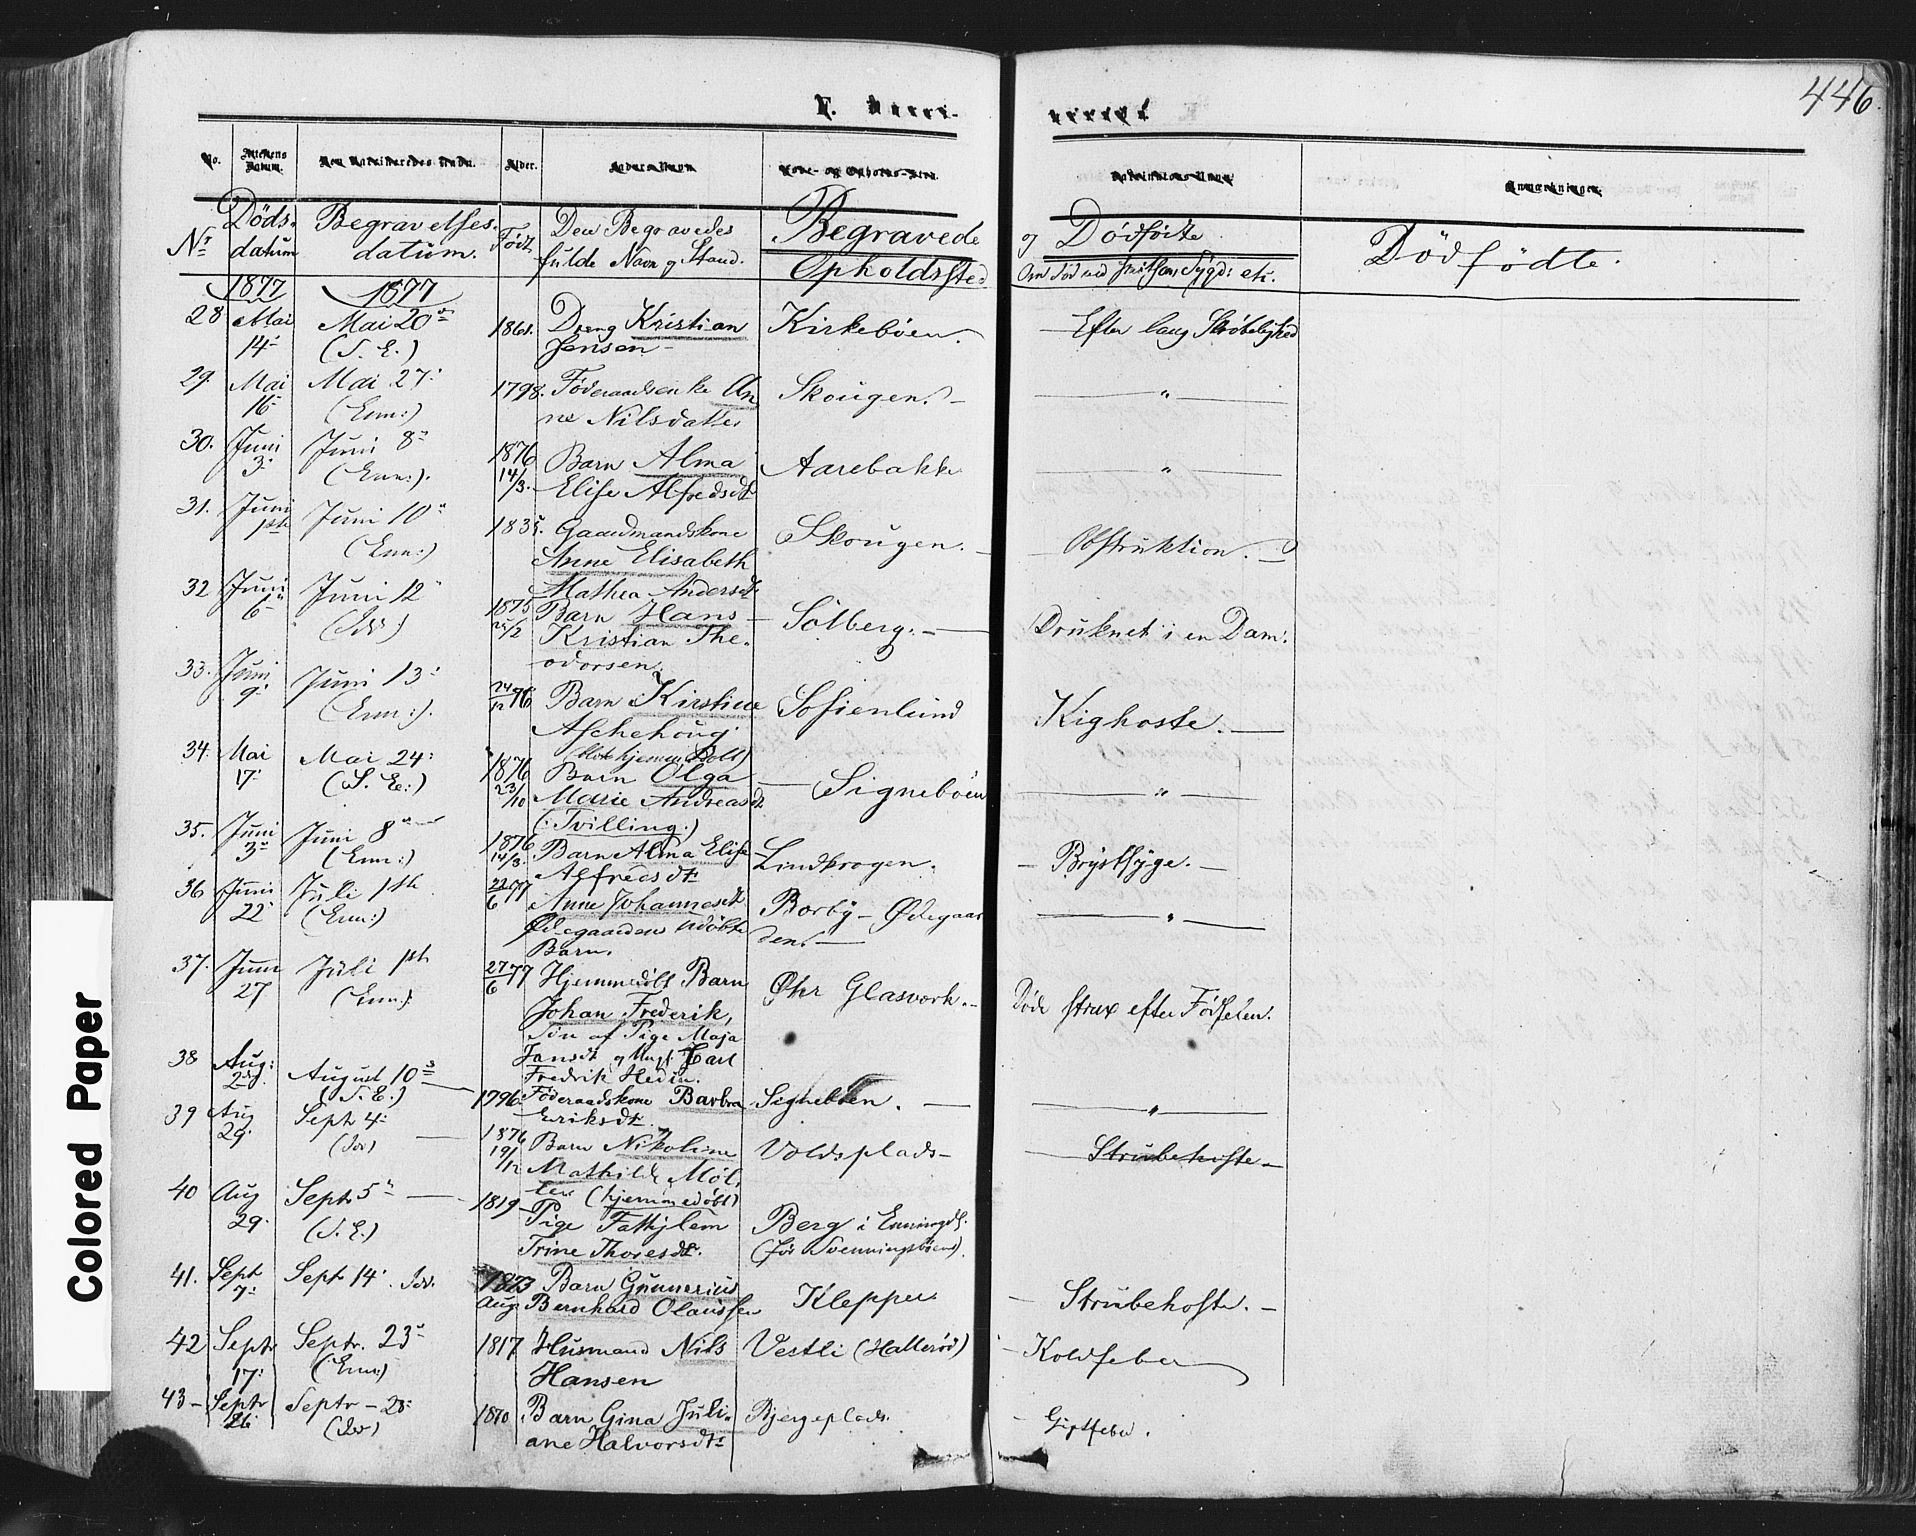 446.
No.
Alder.
Anmærkninger.
Nr
Döds-
datum
Begravelses-
datum.
Födt
Den Begravedes
fulde Navn og Stand.
Begravede
Opholdssted
og Dödfödte
Dödfödte.
1877
1877
28 Mai 14de Mai 20de (S. E.) 1861. Dreng Kristian Jensen Kirkeböen. Efter lang Skröbelighed
29. Mai 16 Mai 27: (Enn:) 1798. Föderaadsenke Anne Nilsdatter Skougen. "
30. Juni 3. Juni 8 (Enn:). 1876 14/3. Barn Alma Elise Alfredsdt Aarebakke "
31. Juni 1ste Juni 10 (Enn:) 1835. Gaardmandskone Anne Elisabeth Mathea Andersdt Skougen. Obstruktion.
32 Juni 6 Juni 12 (Idd:) 1875 /2 Barn Hans Kristian Theodorsen. Solberg. Druknet i en Dam.
33. Juni 9 Juni 13 (Enn:). 24/12 76 Barn Kirstine Aschehoug Sofienlund Kighoste.
34. Mai 17. Mai 24: (S. E:) 1876 23/10 Barn Olga Marie Andreasdt (: Tvilling:) Signeböen "
35. Juni 3 Juni 8 (Enn:) 1876 14/3. Barn Alma Elise Alfredsdt Lindkrogen. Brystsyge.
36 Juni 22 Juli 1ste (Enn:) 22/6 77 Anne Johannesdt Ödegaardens udöbte Barn. Borby-Ödegaarden. "
37. Juni 27 Juli 1ste (Enn). 27/6 77 Hjemmedöbt Barn Johan Frederik, Sön af Pige Maja Jansdt og Ungk. Carl Fredrik Hedin. Glasverk. Döde strax efter Födselen.
38 Aug: 2 August 10 (S. E.) 1796 Föderaadskone Barbra Eriksdt. Signeböen. "
39 Aug 29. Sept 4 (Idd) 1876 19/12 Barn Nikoline Mathilde Möller (hjemmedöbt) Voldsplads Strubehoste
40 Aug 29. Septr 5 (S. E.) 1819 Pige Trine Thoresdt. Berg i Enningd. (för Svenningsböen).
41. Sept 7: Sept 14. Idd. 1873 Aug Barn Gunnerius Bernhard Olaussen Klepper Strubehoste.
42 Septr 17: Septr. 23 (Enn:) 1817 Husmand Nils Hansen Vestli (Halleröd) Koldfeber
43 Septr 26 Septr 28 (Idd) 1870 Barn Gina Juliane Halvorsdt: Bjergeplads. Giftfeber.
Colored Paper